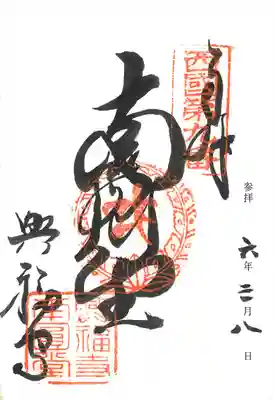 西國第九番
参拝 六年三月八日
南圓堂
興福寺
興福寺
南圓堂